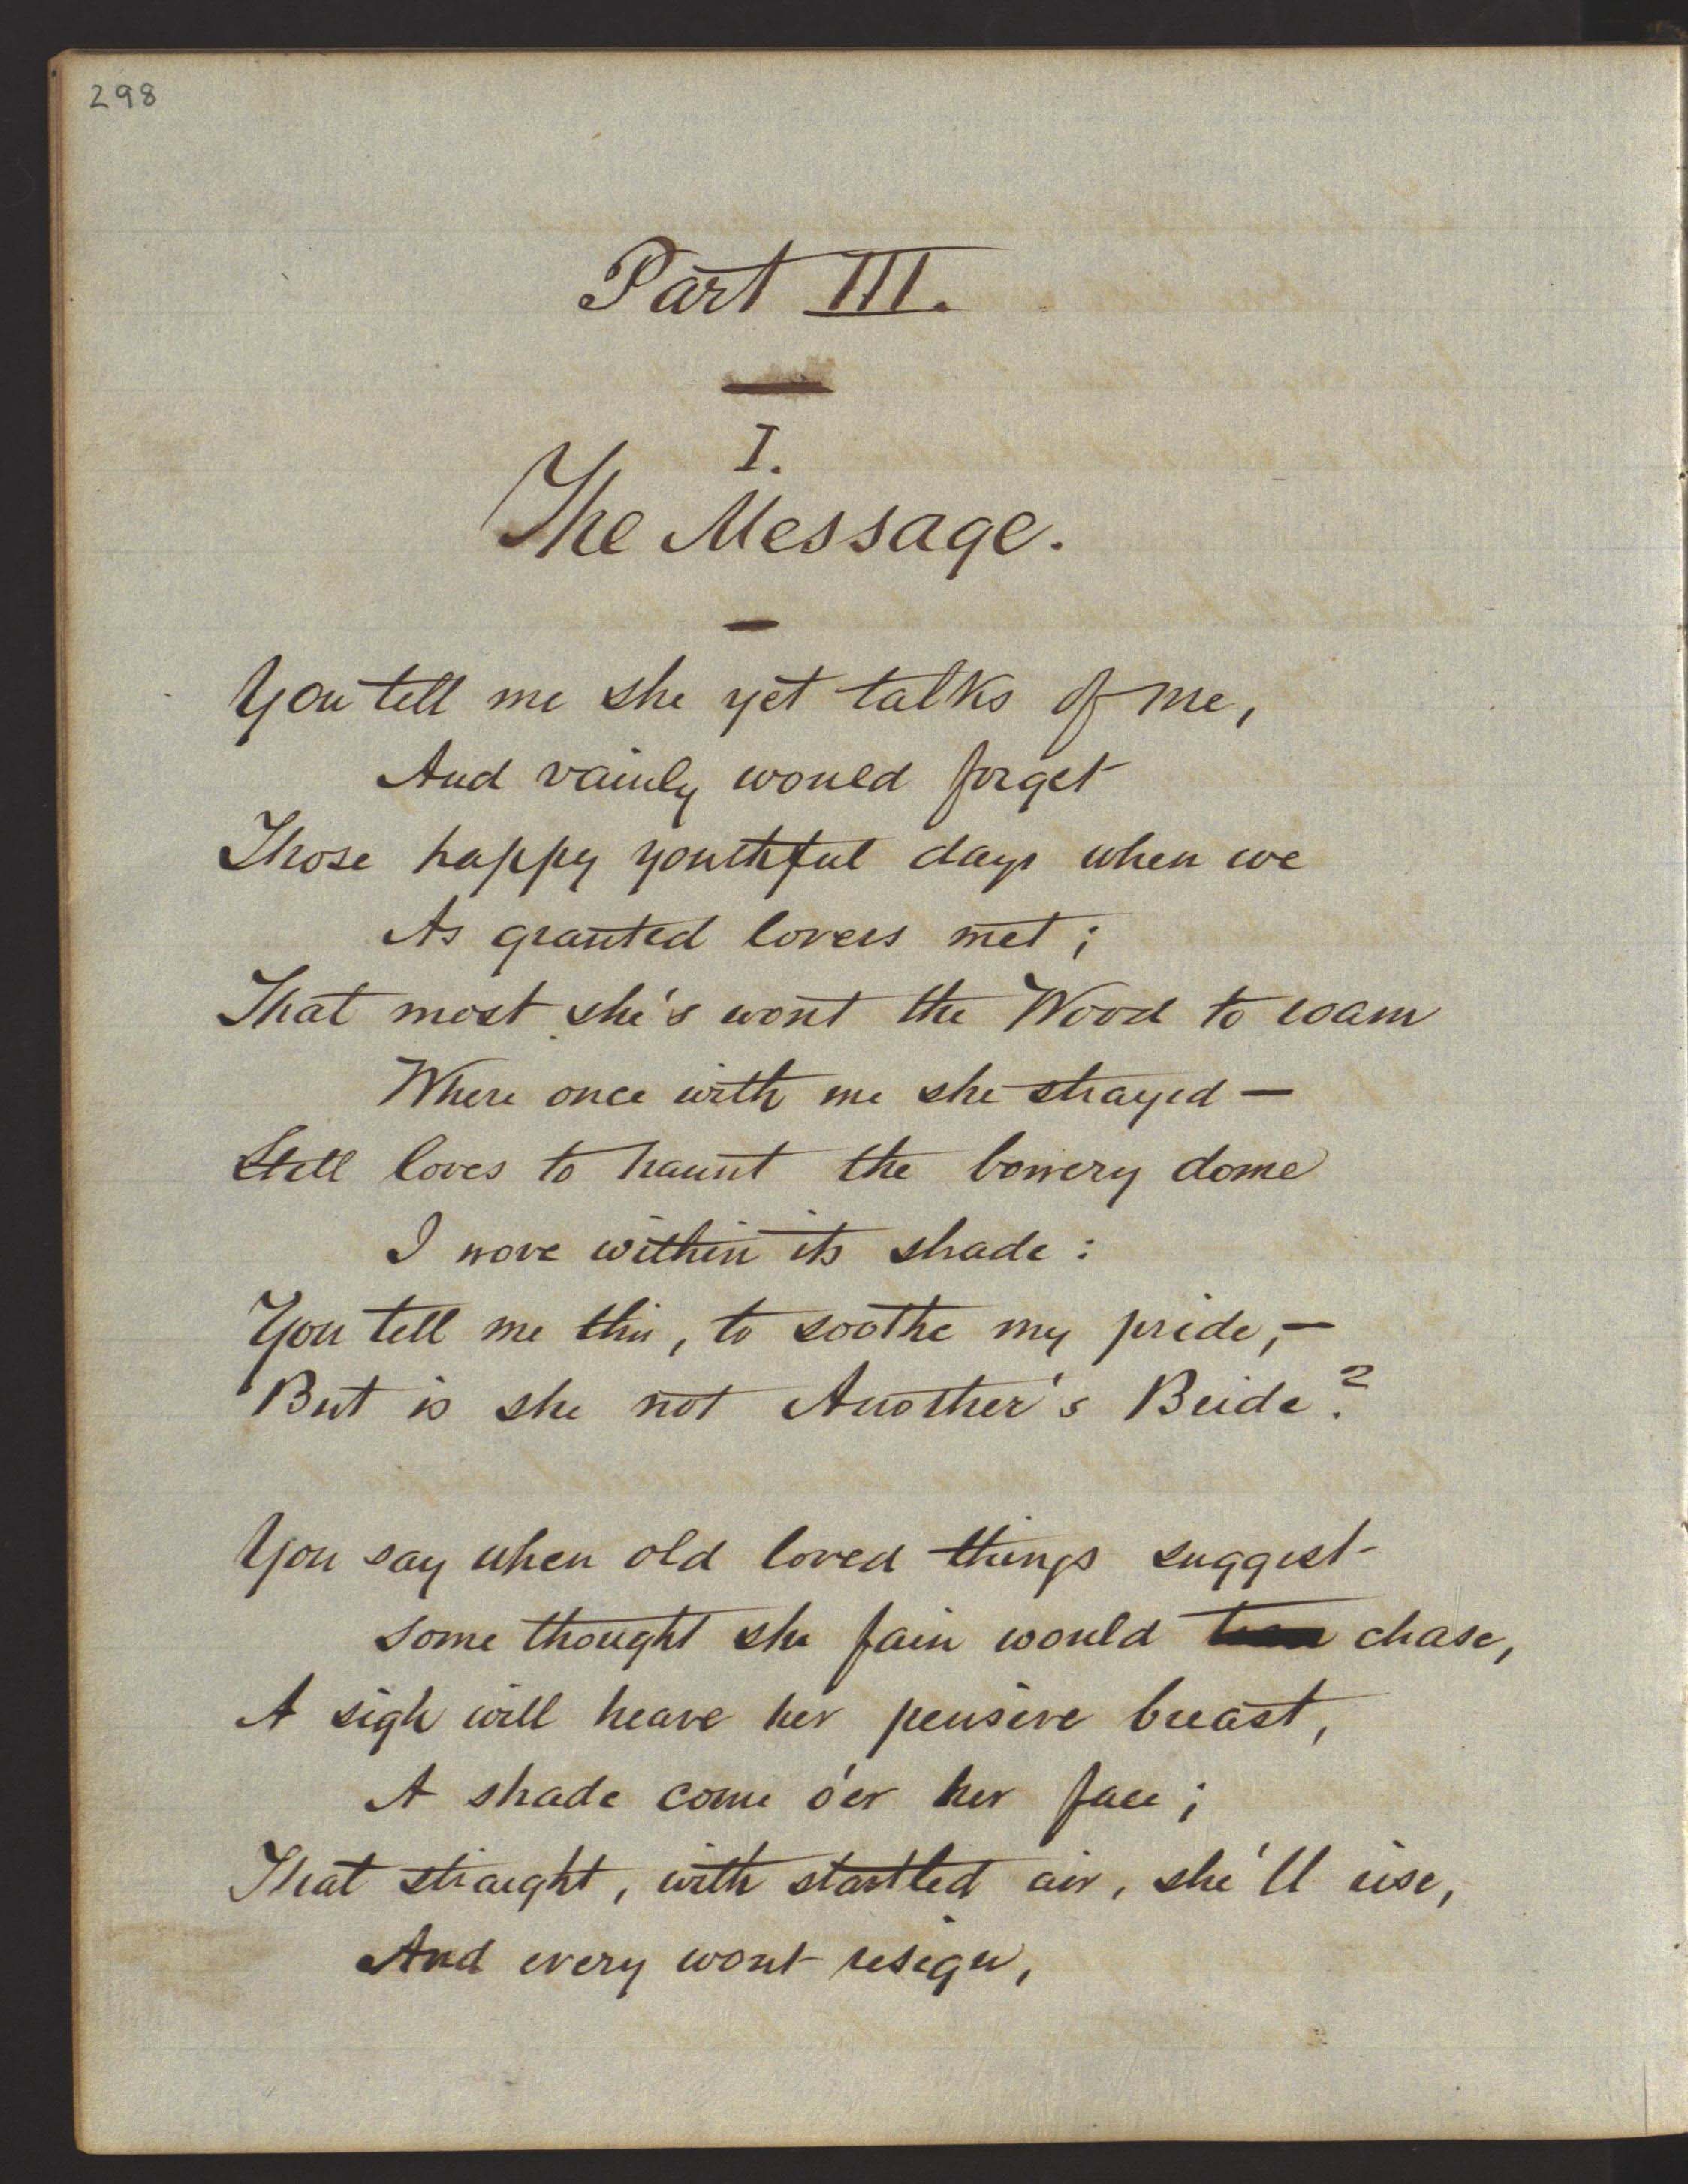 298
Part III.
I.
The Message.
You tell me she yet talks of me,
And vainly would forget
Those happy youthful days when we
As granted lovers met;
That most she's wont the Wood to roam
Where once with me she strayed —
Still loves to haunt the bowery dome
I wove within its shade:
You tell me this, to soothe my pride,—
But is she not Another's Bride?
You say when old loved things suggest
Some thought she fain would chase,
A sigh will heave her pensive breast,
A shade come o'er her face;
That straight, with startled air, she'll rise,
And every wont resign,